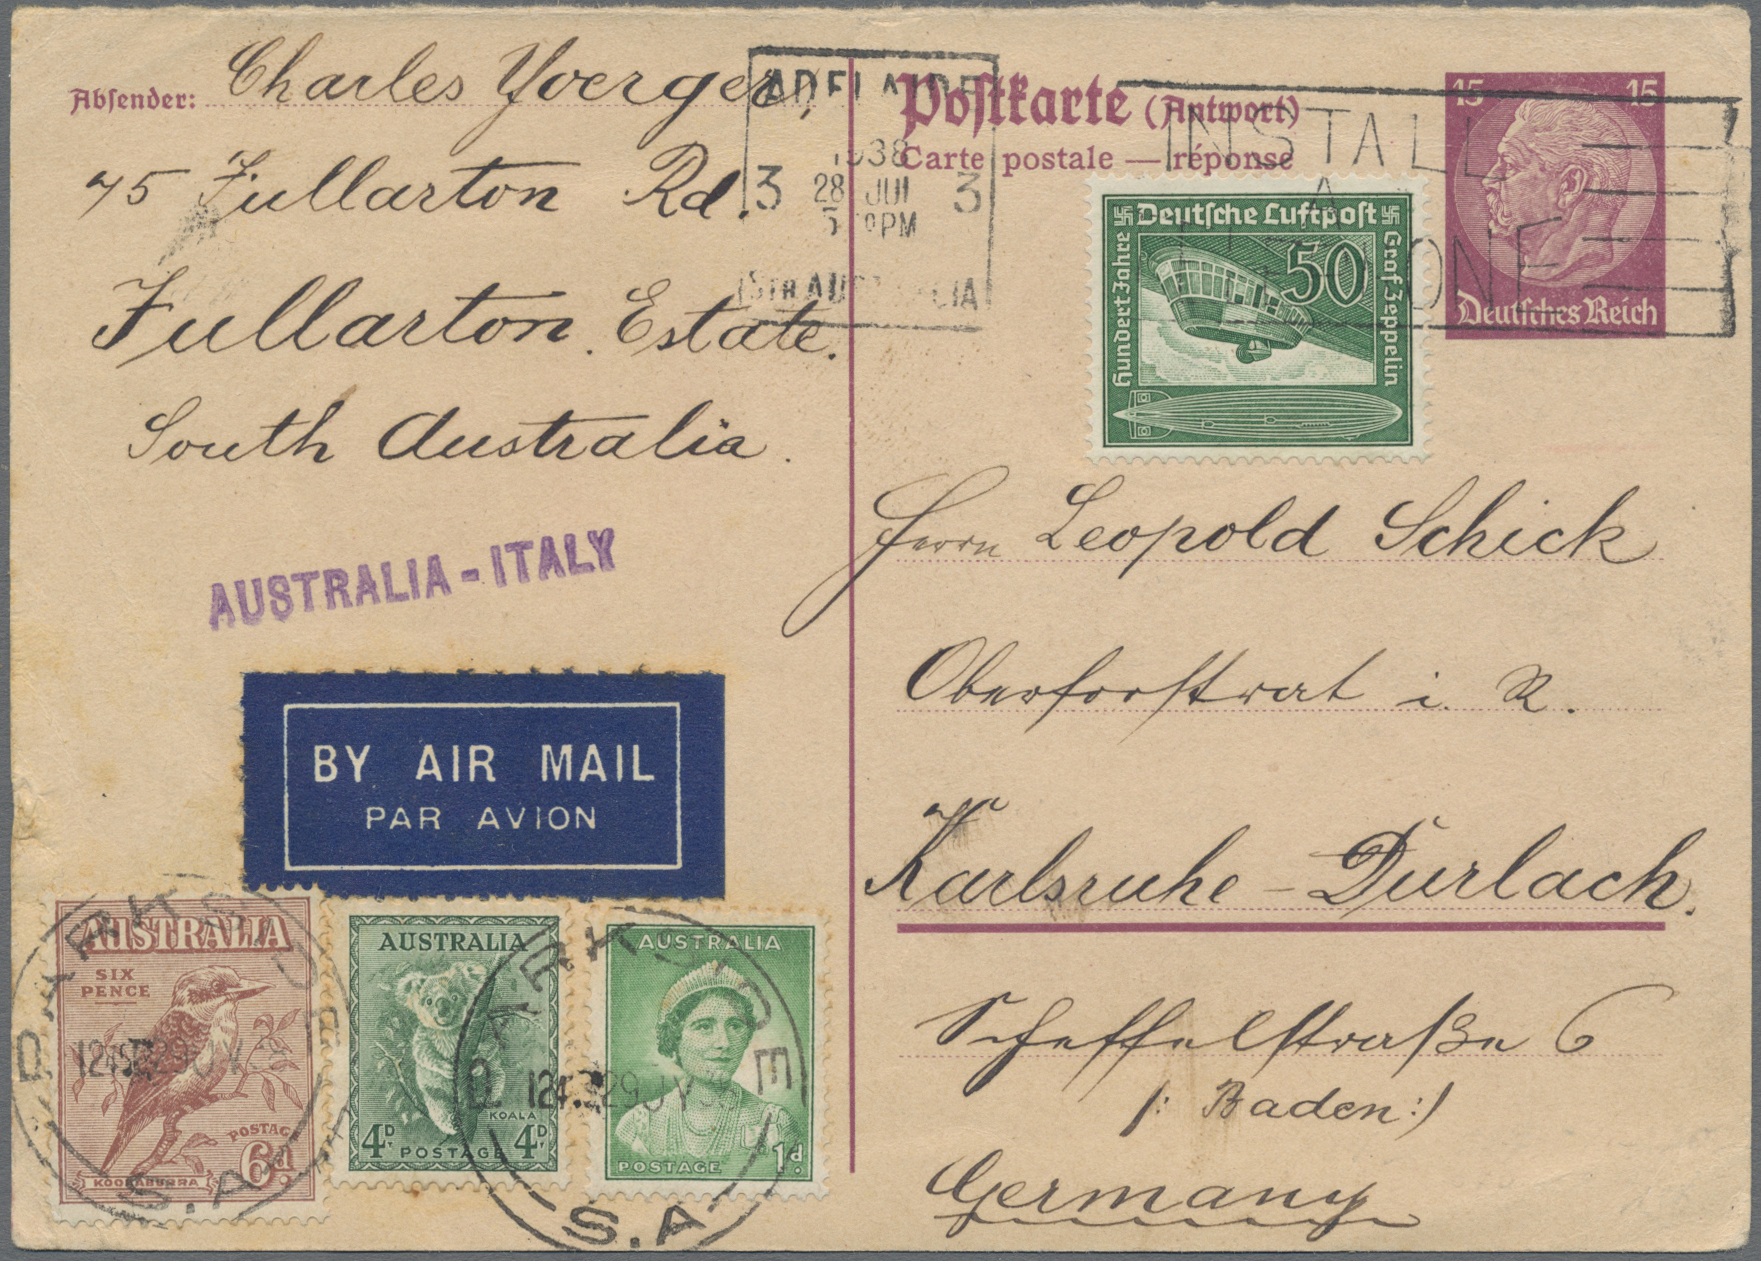 Absender: Charles Yoerger,
75 Fullarton Rd.
Fullarton Estate.
South Australia.
ADELAIDE
1938
3 28 JUL 3
PM
STH AUSTRALIA
Postkarte (Antwort)
Carte postale — réponse
INSTALL
A
TELEPHONE
15 15
Deutsches Reich
Deutsche Luftpost
Hundert Jahre
50
Graf Zeppelin
AUSTRALIA - ITALY
BY AIR MAIL
PAR AVION
Herrn Leopold Schick
Oberforstrat i. R.
Karlsruhe - Durlach.
Scheffelstraße 6
/: Baden :/
Germany
AUSTRALIA
SIX
PENCE
POSTAGE
6d.
KOOKABURRA
AUSTRALIA
KOALA
4D. POSTAGE 4D.
AUSTRALIA
POSTAGE 1d.
PARKSIDE
S.A
PARKSIDE
S.A